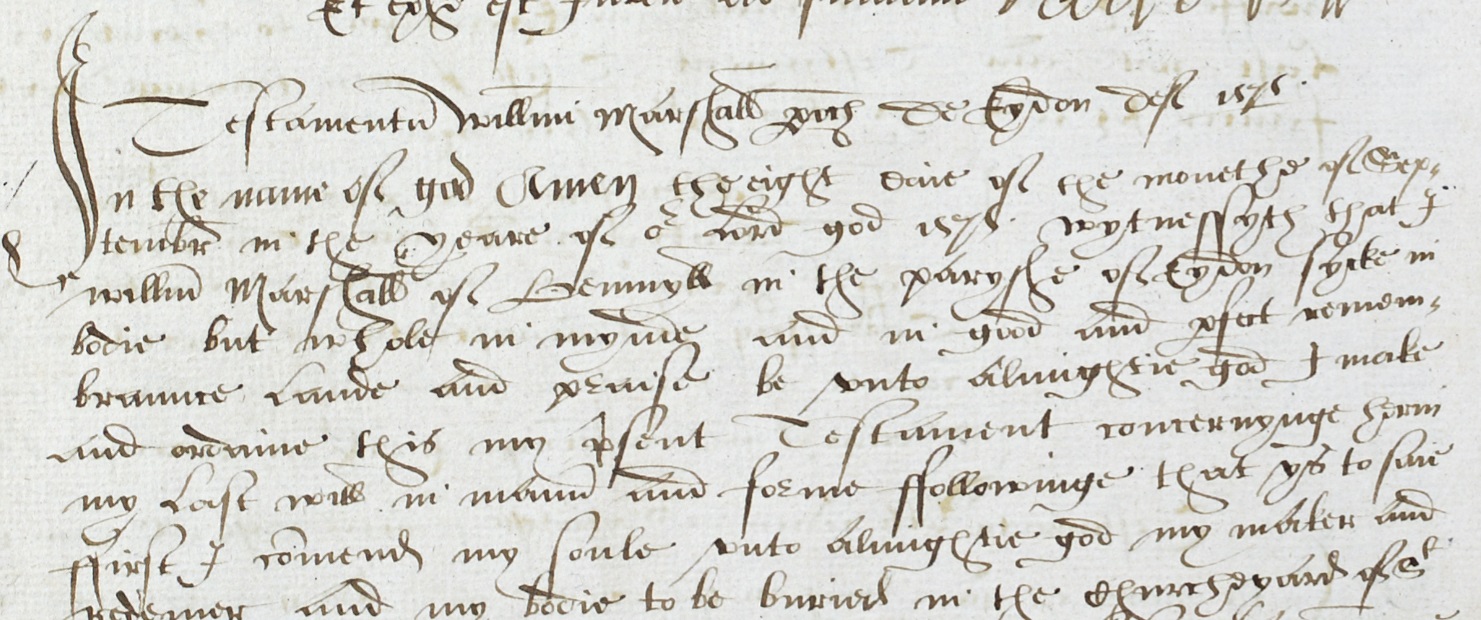 Testamentu Willmi Marshall de Eydon 1575
In the name of god Amen the eight daie of the monethe of Sep-
tembr in the yeare of or Lord god 1575 wytnessyth that I
willm Marshall of in the paryshe of Eydon sycke in
bodie but whole in mynde and in good and pfect remem-
braunce Laude and praise be vnto almightie god I make
and ordaine this my psent Testament concernynge herin
my Last will in mann and forme ffollowinge that ys to saie
ffirst I comend my soule vnto almightie god my maker and
redemer and my bodie to be buried in the Churcheyard of St